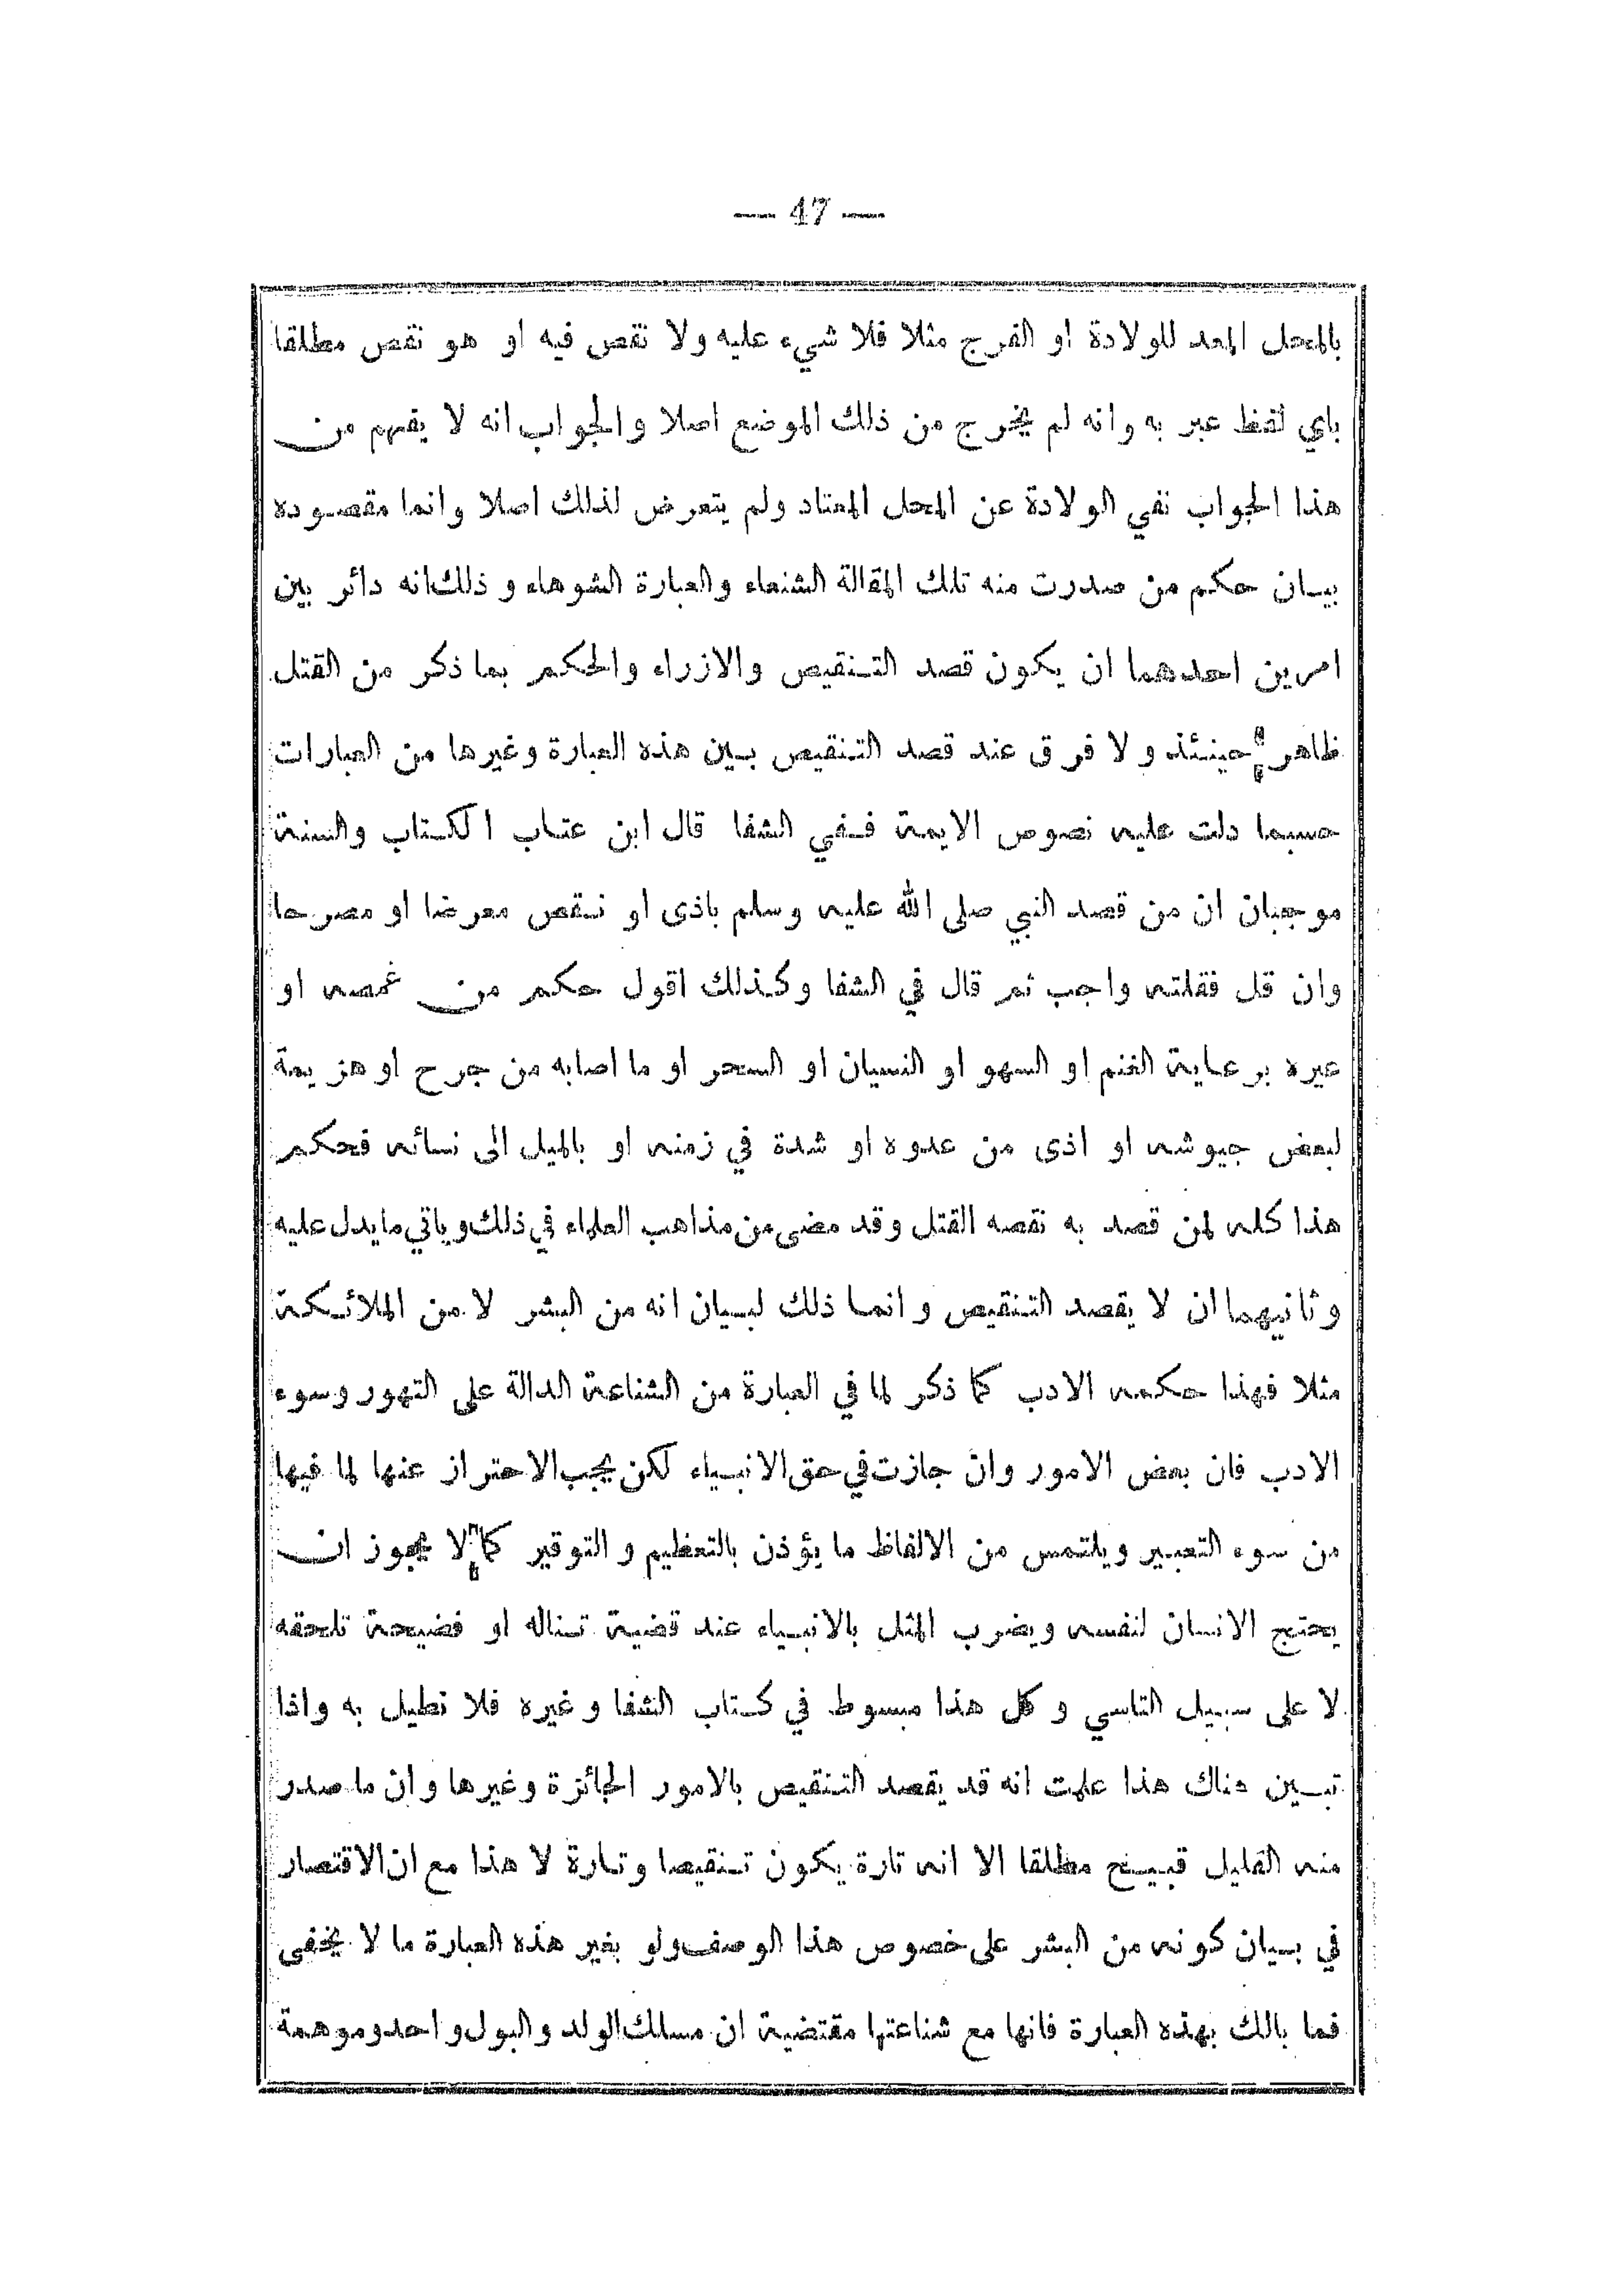 — 47 —
بالمحل المعد للولادة او الفرج مثلا فلا شيء عليه ولا نقص فيه او هو نقص مطلقا
باي لفظ عبر به وانه لم يخرج من ذلك الموضع اصلا والجواب انه لا يفهم من
هذا الجواب نفي الولادة عن المحل المعتاد ولم يتعرض لذلك اصلا وانما مقصوده
بيان حكم من صدرت منه تلك المقالة الشنعاء والعبارة الشوهاء وذلك انه دائر بين
امرين احدهما ان يكون قصد التنقيص والازراء والحكم بما ذكر من القتل
ظاهر حينئذ ولا فرق عند قصد التنقيص بين هذه العبارة وغيرها من العبارات
حسبما دلت عليه نصوص الايمة ففي الشفا قال ابن عتاب الكتاب والسنة
موجبان ان من قصد النبي صلى الله عليه وسلم باذى او نقص معرضا او مصرحا
وان قل فقلته واجب ثم قال في الشفا وكذلك اقول حكم من غمصه او
عيره برعاية الغنم او السهو او النسيان او السحر او ما اصابه من جرح او هزيمة
لبعض جيوشه او اذى من عدوه او شدة في زمنه او بالميل الى نسائه فحكم
هذا كله لمن قصد به نقصه القتل وقد مضى من مذاهب العلماء في ذلك وياتي ما يدل عليه
وثانيهما ان لا يقصد التنقيص وانما ذلك لبيان انه من البشر لا من الملائكة
مثلا فهذا حكمه الادب كما ذكر لما في العبارة من الشناعة الدالة على التهور وسوء
الادب فان بعض الامور وان جازت في حق الانبياء لكن يجب الاحتراز عنها لما فيها
من سوء التعبير ويلتمس من الالفاظ ما يؤذن بالتعظيم والتوقير كما لا يجوز ان
يحتج الانسان لنفسه ويضرب المثل بالانبياء عند قضية تناله او فضيحة تلحقه
لا على سبيل التاسي وكل هذا مبسوط في كتاب الشفا وغيره فلا نطيل به واذا
تبين هناك هذا علمت انه قد يقصد التنقيص بالامور الجائزة وغيرها وان ما صدر
منه القليل قبيح مطلقا الا انه تارة يكون تنقيصا وتارة لا هذا مع ان الاقتصار
في بيان كونه من البشر على خصوص هذا الوصف ولو بغير هذه العبارة ما لا يخفى
فما بالك بهذه العبارة فانها مع شناعتها مقتضية ان مسلك الولد والبول واحد وموهمة